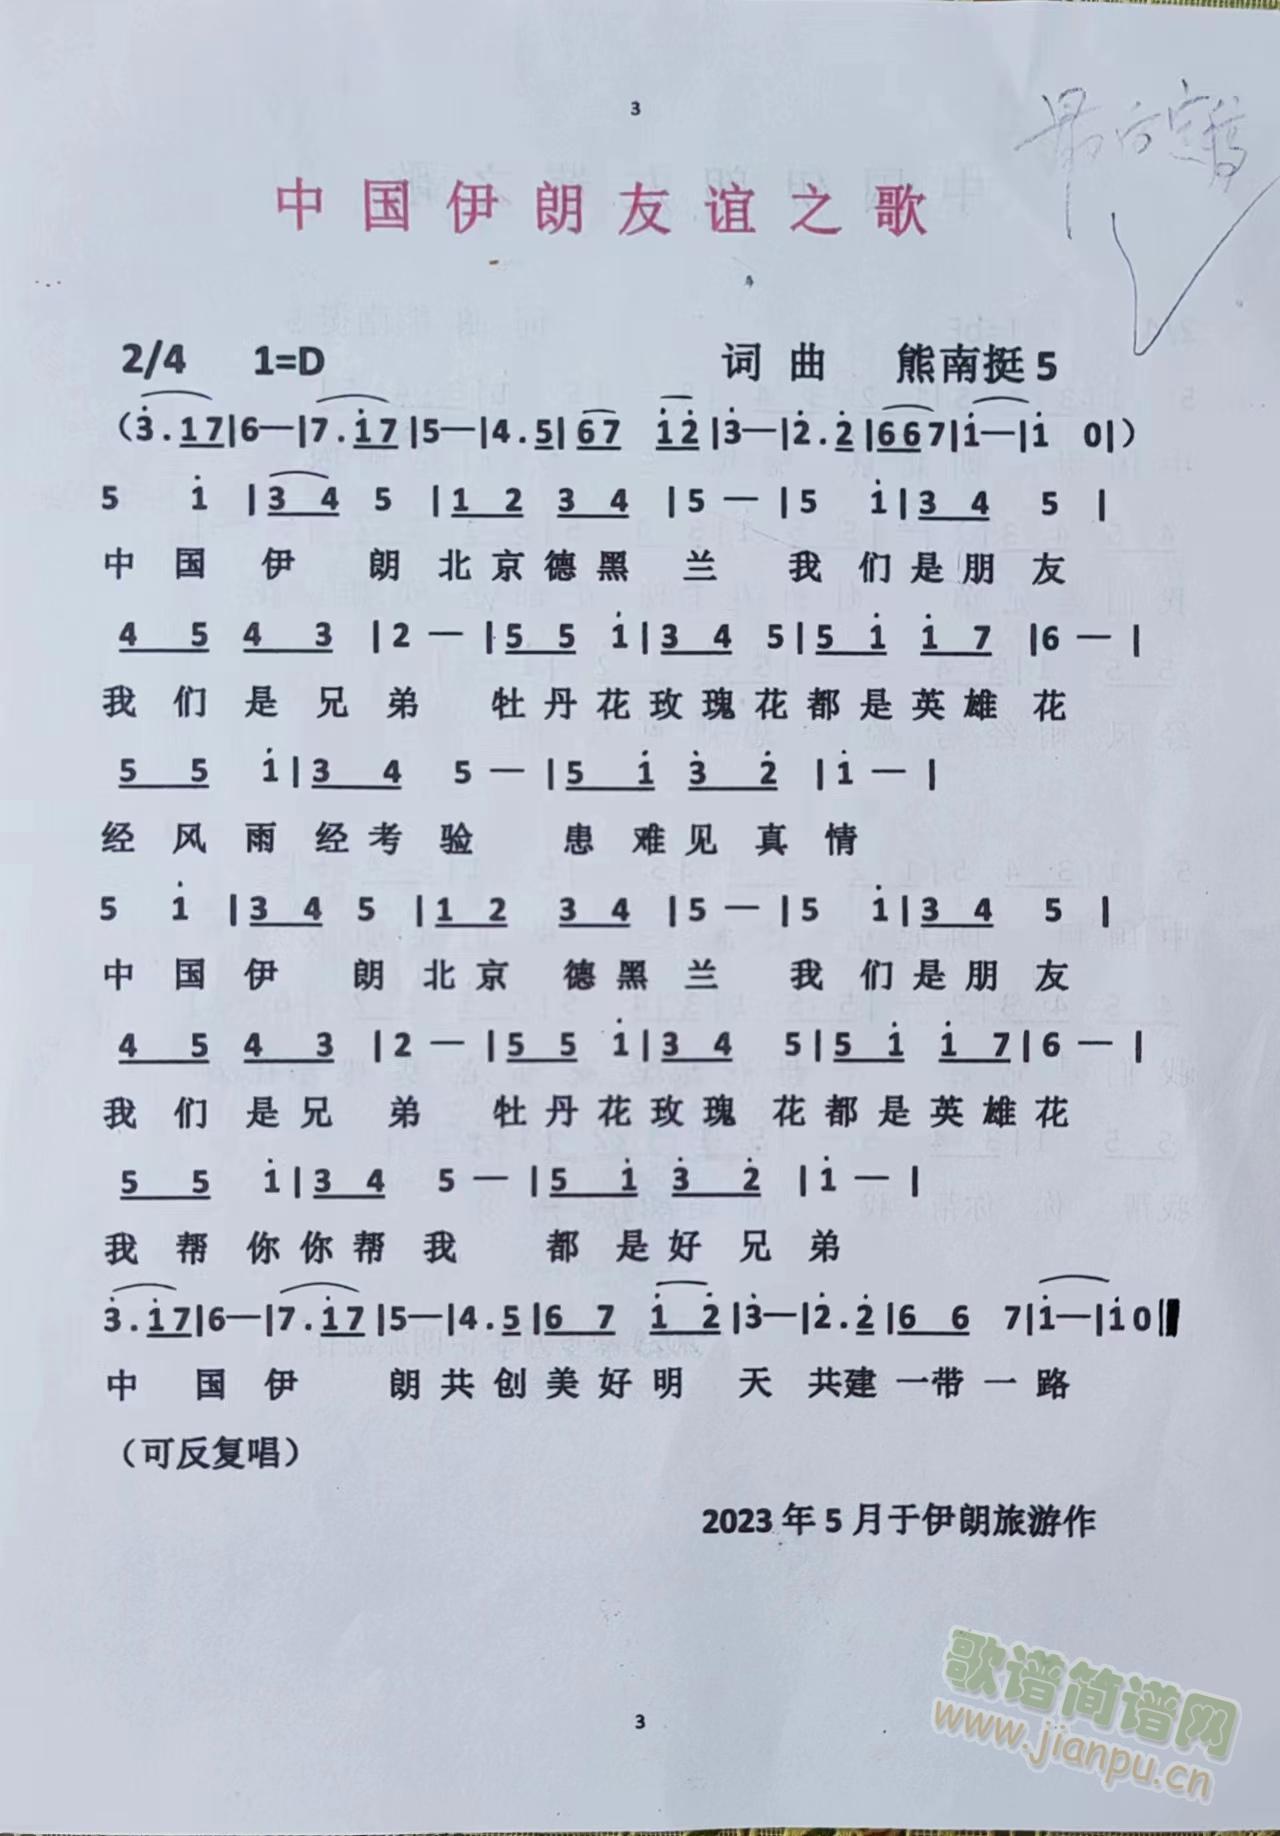 3
最后定稿
中国伊朗友谊之歌
2/4 1=D 词曲 熊南挺 5
（3̇.1̇7|6—|7.1̇7|5—|4.5|67 1̇2̇|3̇—|2̇.2̇|667|1̇—|1̇ 0|）
5 1̇ |3 4 5 |1 2 3 4 |5 — |5 1̇|3 4 5 |
中国伊朗北京德黑兰我们是朋友
4 5 4 3 |2 — |5 5 1̇|3 4 5|5 1̇ 1̇ 7 |6 — |
我们是兄弟 牡丹花玫瑰花都是英雄花
5 5 1̇|3 4 5 — |5 1̇ 3̇ 2̇ |1̇ — |
经风雨经考验 患难见真情
5 1̇ |3 4 5 |1 2 3 4 |5 — |5 1̇|3 4 5 |
中国伊朗北京德黑兰我们是朋友
4 5 4 3 |2 — |5 5 1̇|3 4 5|5 1̇ 1̇ 7|6 — |
我们是兄弟 牡丹花玫瑰花都是英雄花
5 5 1̇|3 4 5 — |5 1̇ 3̇ 2̇ |1̇ — |
我帮你你帮我 都是好兄弟
3̇.1̇7|6—|7.1̇7|5—|4.5|6 7 1̇ 2̇|3̇—|2̇.2̇|6 6 7|1̇—|1̇0‖
中国伊朗共创美好明天共建一带一路
（可反复唱）
2023年5月于伊朗旅游作
歌谱简谱网
www.jianpu.cn
3